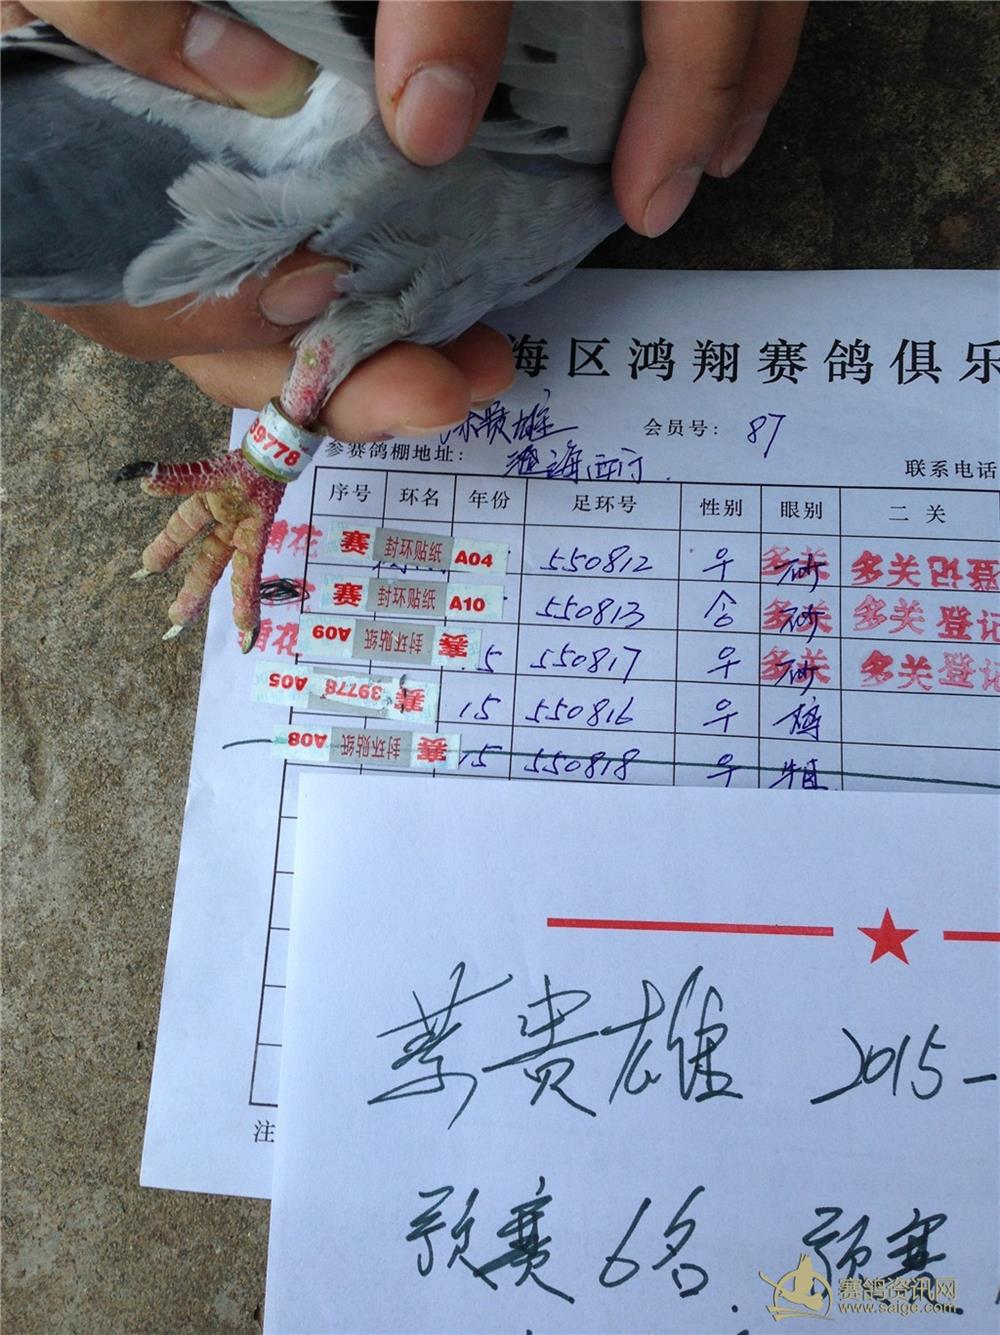 海区鸿翔赛鸽俱乐
会员号: 87
参赛鸽棚地址: 澄海西门
联系电话
序号 环名 年份 足环号 性别 眼别 二关
赛 封环贴纸 A04 550812 砂 多关 多关登记
赛 封环贴纸 A10 550813 砂 多关 多关登记
赛 封环贴纸 A09 15 550817 砂 多关 多关登记
赛 39778 A05 15 550816
赛 封环贴纸 A08 15 550818
39778
注
蔡贵雄 2015-
预赛6名. 预赛
赛鸽资讯网
www.saige.com